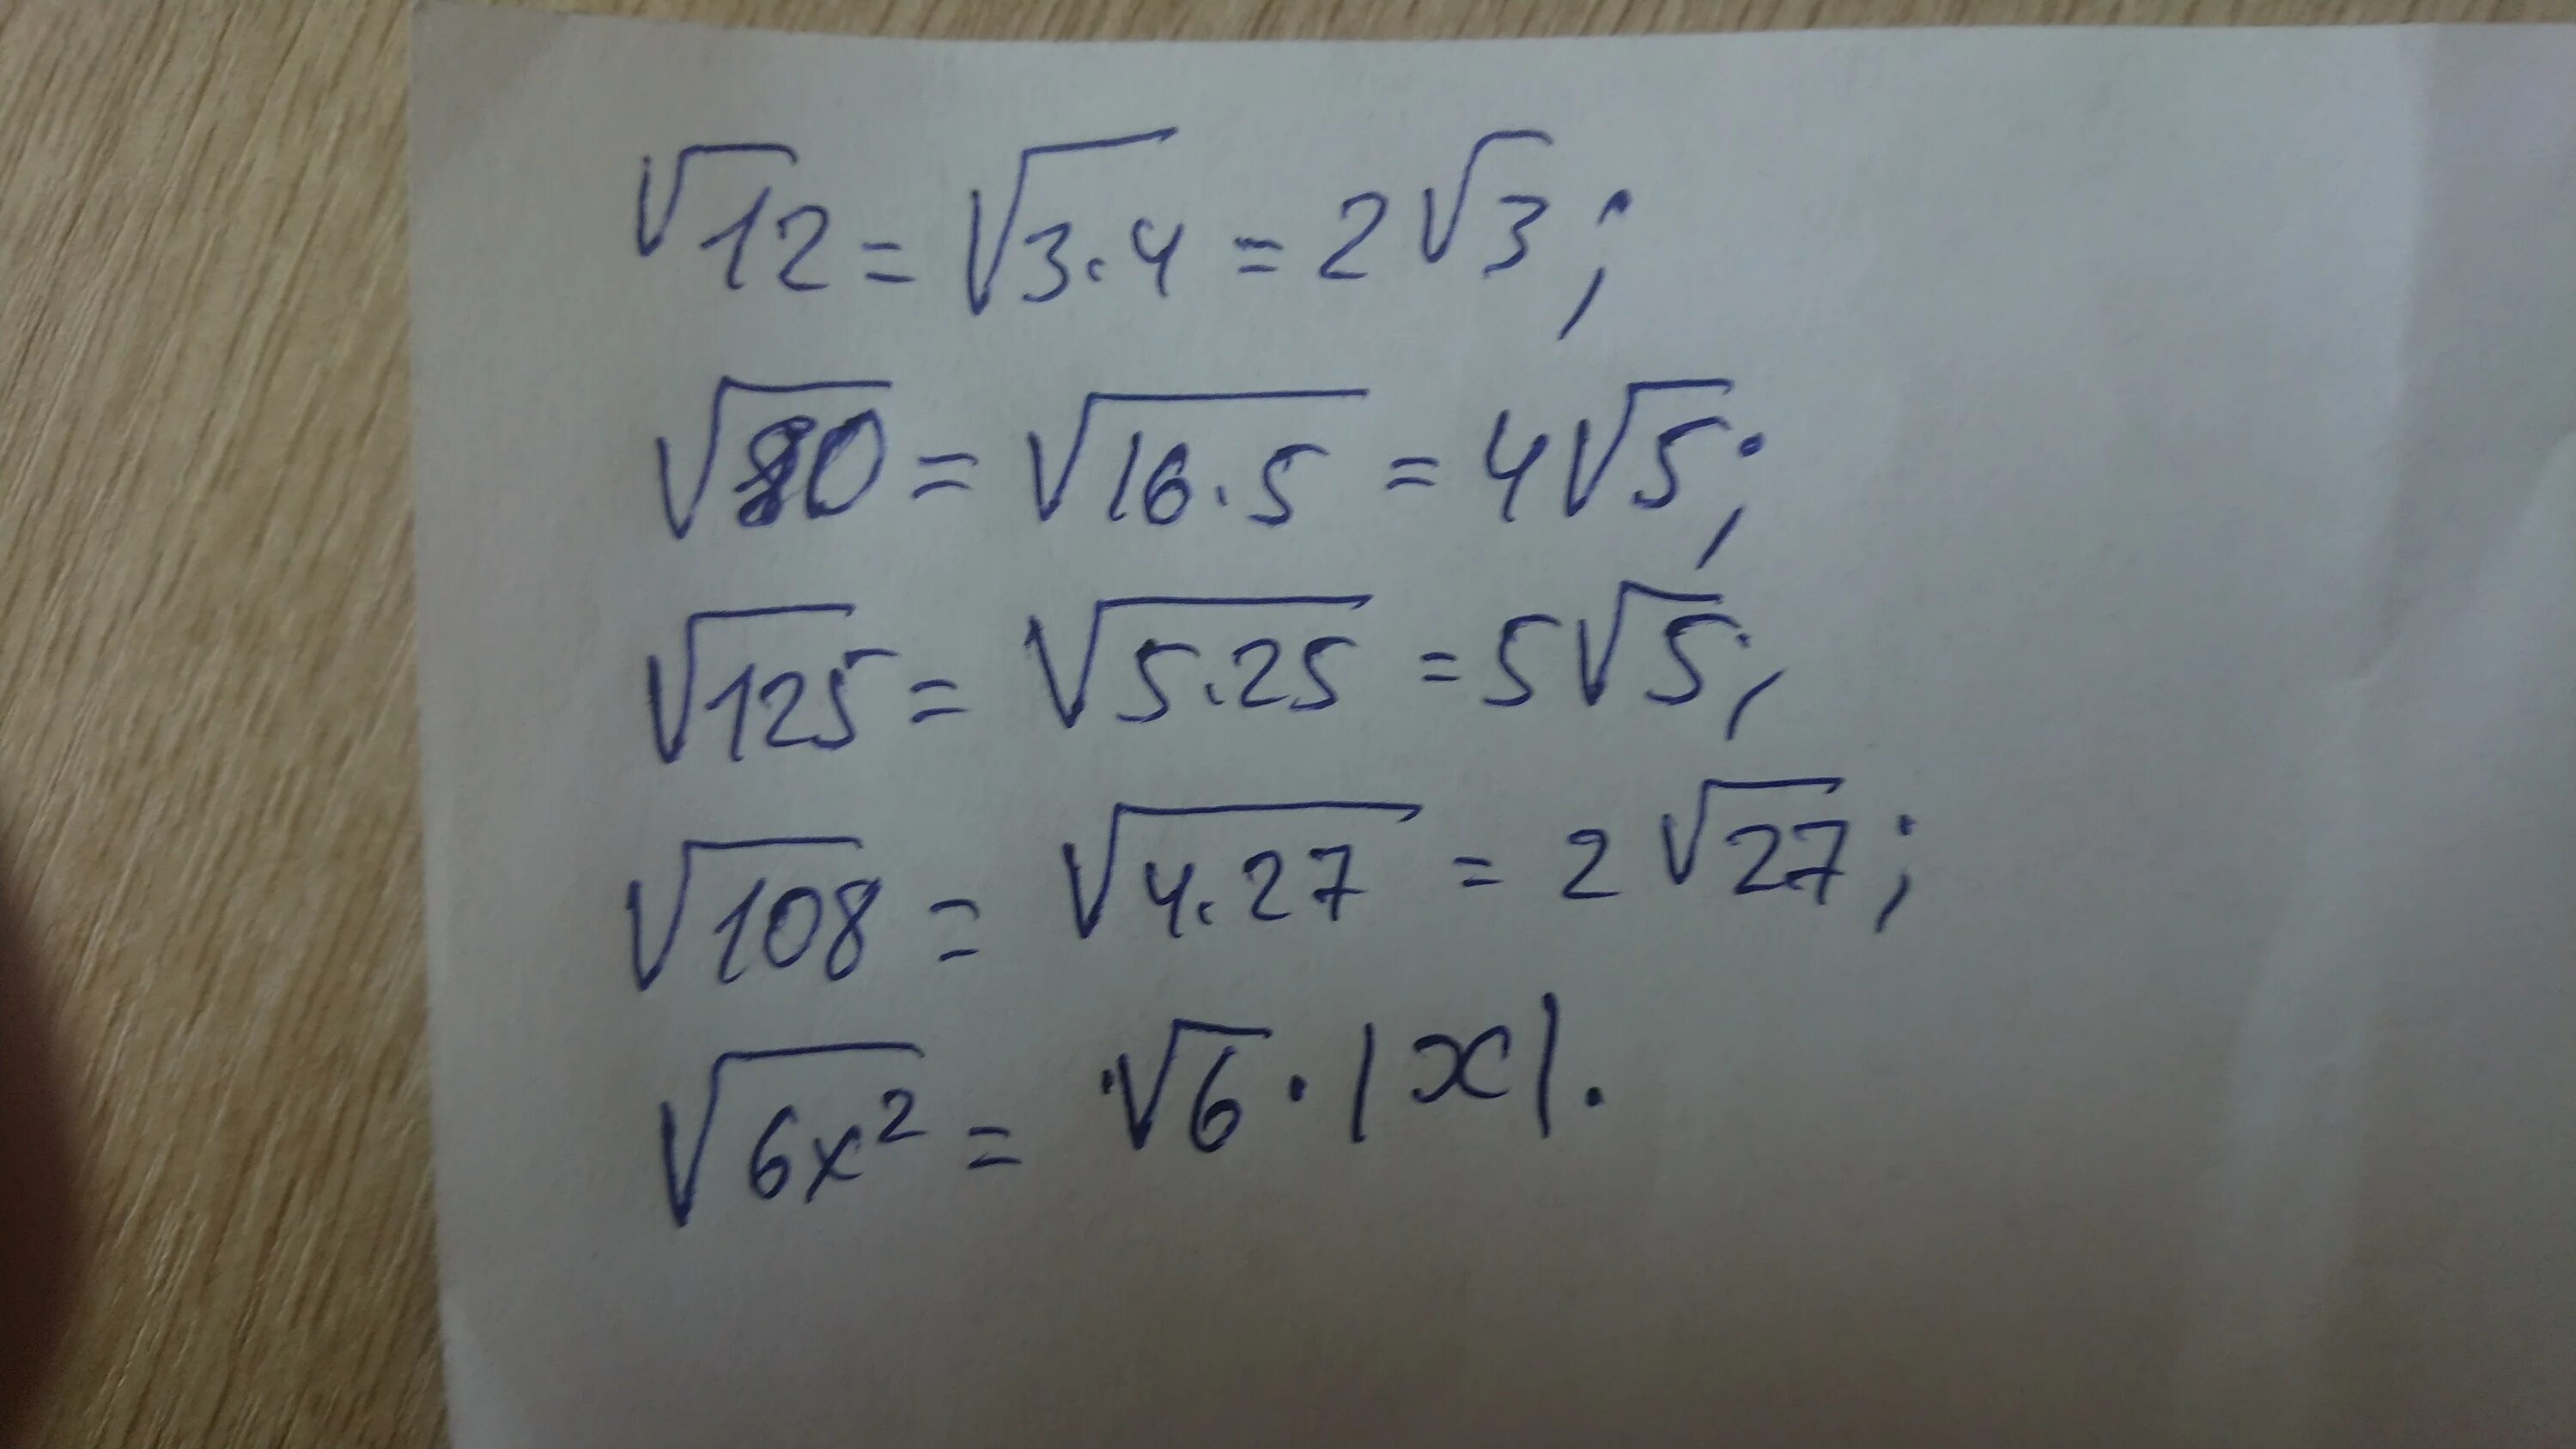 √12 = √3·4 = 2√3;
√80 = √16·5 = 4√5;
√125 = √5·25 = 5√5;
√108 = √4·27 = 2√27;
√6x² = √6·|x|.